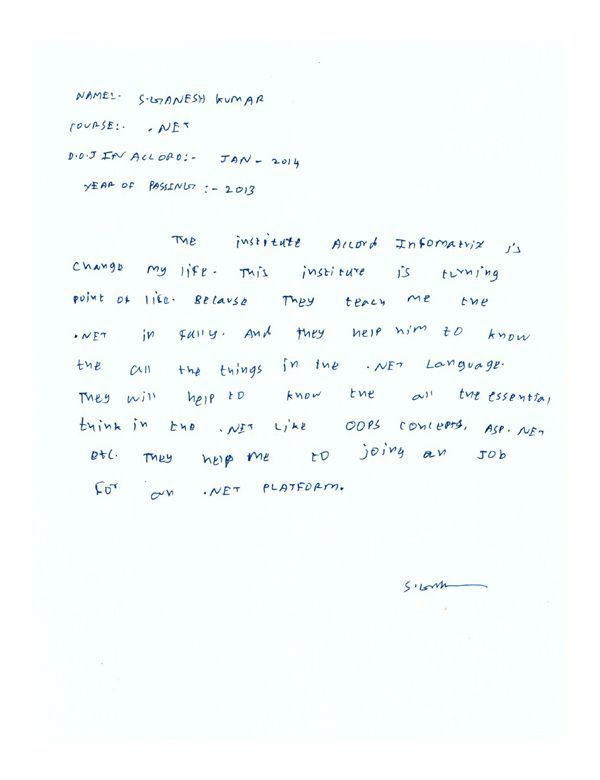 NAME:- S.GANESH KUMAR
COURSE:- .NET
D.O.J IN ACCORD:- JAN - 2014
YEAR OF PASSING :- 2013
The institute Accord Infomatrix is
change my life. This institure is turning
point of life. Because They teach me the
.NET in fully. And they help him to know
the all the things in the .NET Language.
They will help to know the all the essential
think in the .NET Like OOPS concepts, ASP.NET
etc. They help me to joing an JOB
For an .NET PLATFORM.